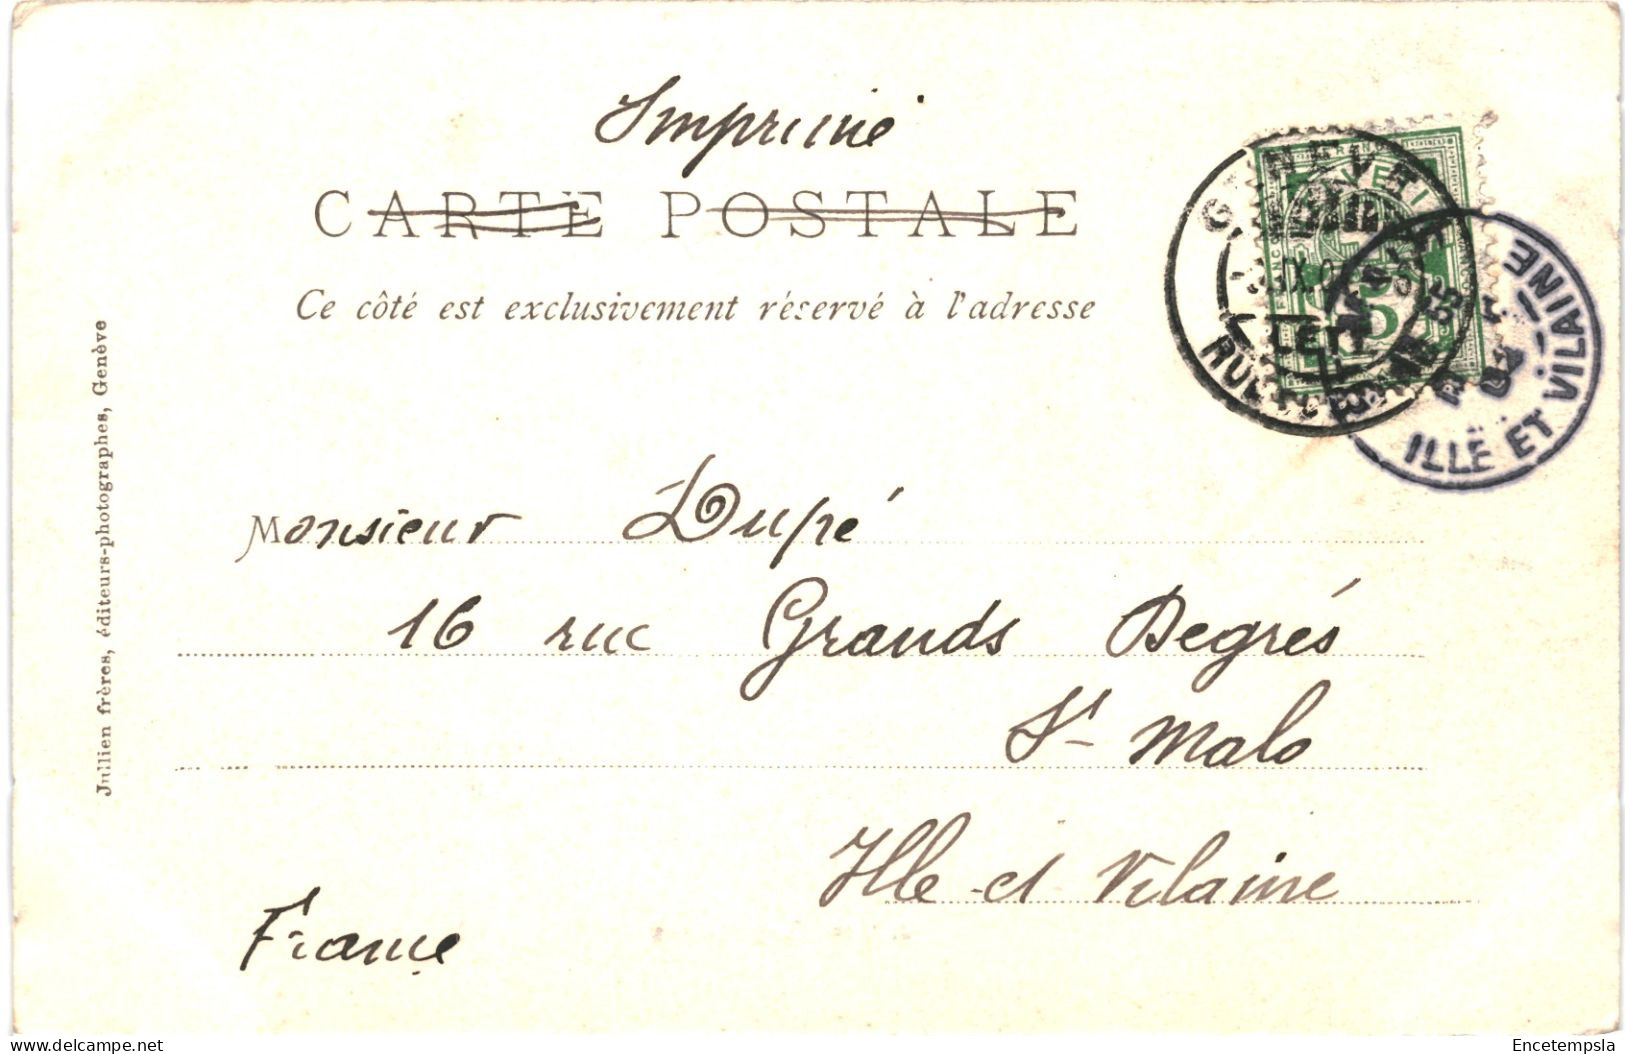 Imprimé
CARTE POSTALE
Ce côté est exclusivement réservé à l'adresse
Julien frères, éditeurs-photographes, Genève
Monsieur Dupé
16 rue Grands Degrés
St Malo
Ille et Vilaine
France
GENEVE
LETT
RUE
5
ILLE ET VILAINE
delcampe.net
Encetempsla